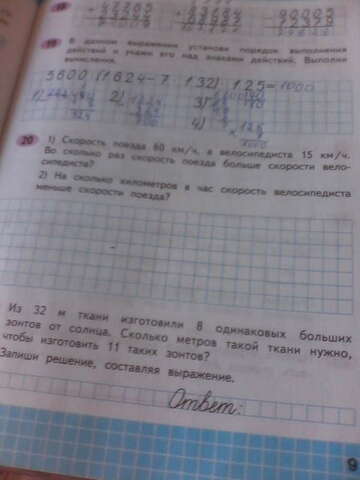 19 В данном выражении установи порядок выполнения
действий и укажи его над знаками действий. Выполни
вычисления.
5600 (1624-7 132) 125=1000
1)
2)
3)
4)
20 1) Скорость поезда 60 км/ч, а велосипедиста 15 км/ч.
Во сколько раз скорость поезда больше скорости вело-
сипедиста?
2) На сколько километров в час скорость велосипедиста
меньше скорости поезда?
Из 32 м ткани изготовили 8 одинаковых больших
зонтов от солнца. Сколько метров такой ткани нужно,
чтобы изготовить 11 таких зонтов?
Запиши решение, составляя выражение.
Ответ:
9